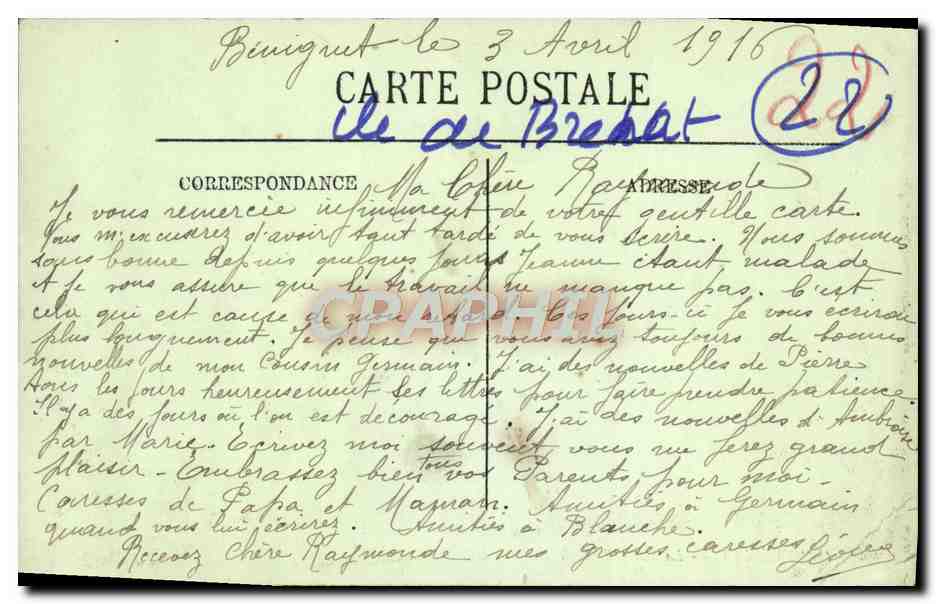 Béniguet le 3 Avril 1916
22
CARTE POSTALE
ile de Brehat 22
CORRESPONDANCE
ADRESSE
Ma Chère Raymonde
Je vous remercie infiniment de votre gentille carte.
Vous m'excuserez d'avoir tant tardé de vous écrire. Nous sommes
sans bonne depuis quelques jours Jeanne étant malade
et je vous assure que le travail ne manque pas. C'est
cela qui est cause de mon retard. Ces jours-ci je vous écrirai
plus longuement. Je pense que vous avez toujours de bonnes
nouvelles de mon Cousin Germain. J'ai des nouvelles de Pierre
tous les jours heureusement ses lettres font faire prendre patience.
Il y a des jours où l'on est découragé. J'ai des nouvelles d'Ambroise
par Marie. Ecrivez moi souvent, vous me ferez grand
plaisir - Embrassez bien tous vos Parents pour moi -
Caresses de Papa et Maman. Amitiés à Germain
quand vous lui écrirez. Amitiés à Blanche.
Recevez Chère Raymonde mes grosses caresses
CPAPHIL